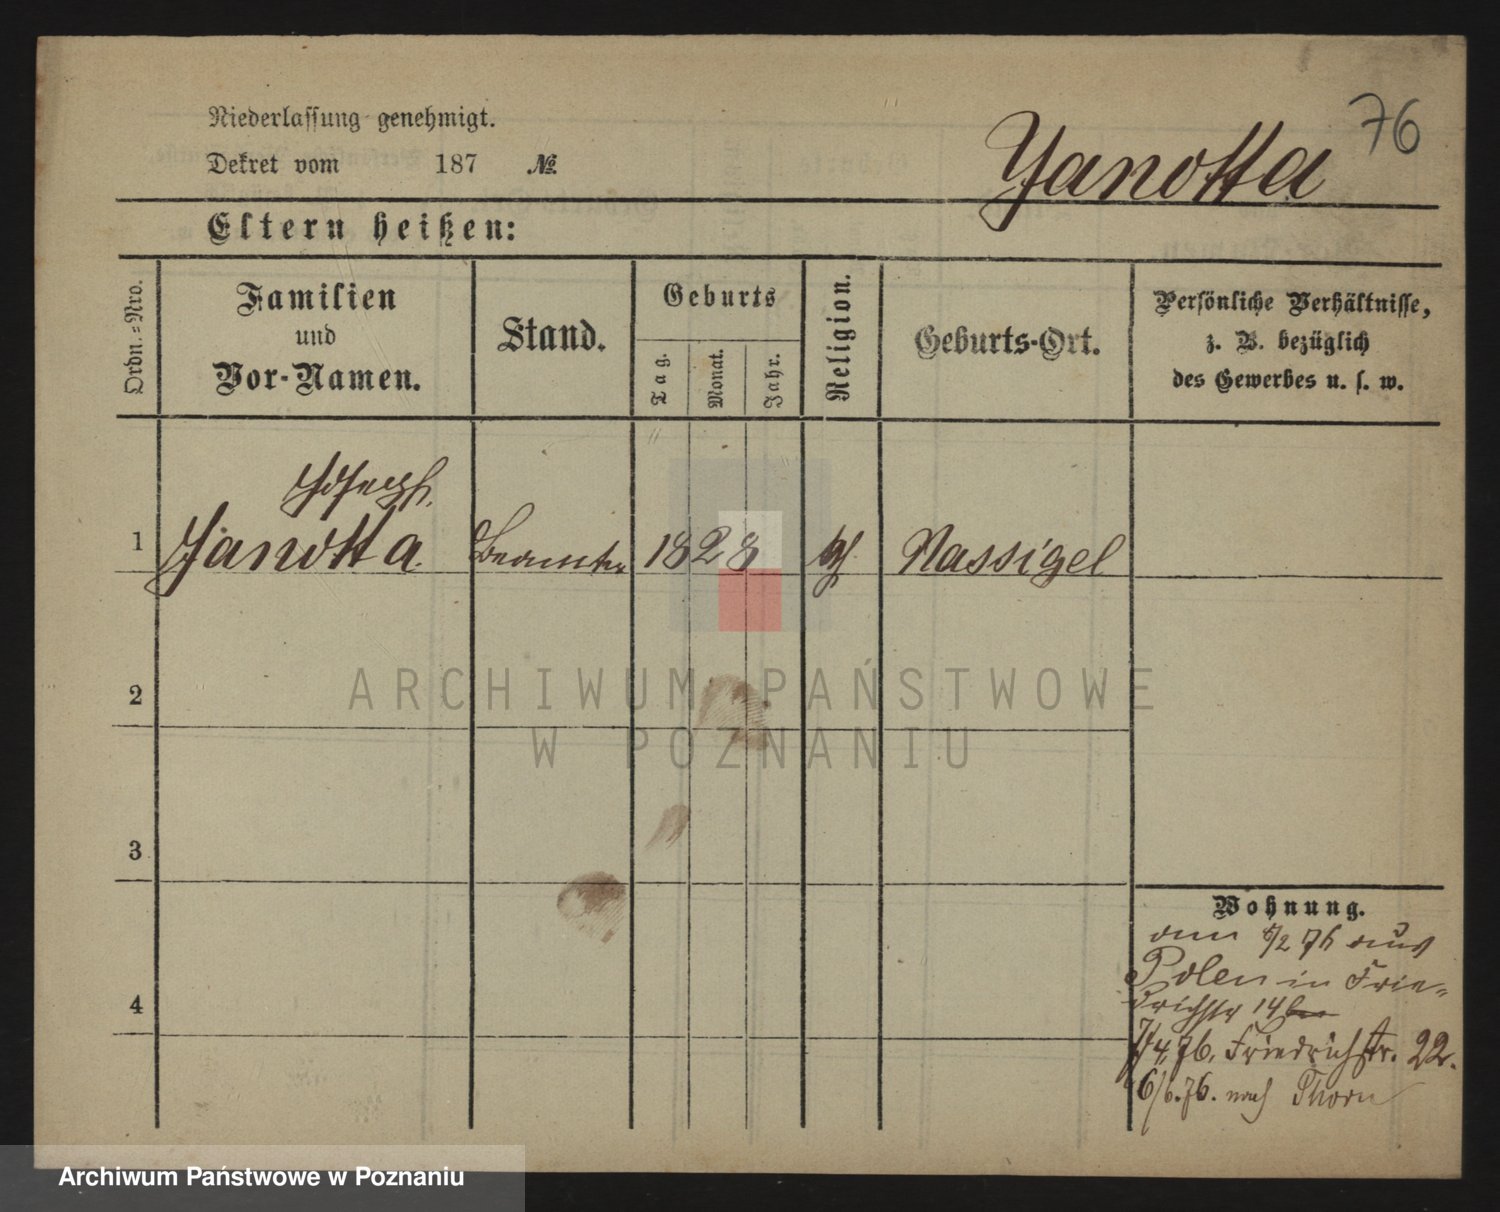 76
Niederlassung genehmigt.
Dekret vom 187 №
Janotta
Eltern heißen:
Ordn.=Nro.
Familien
und
Vor-Namen.
Stand.
Geburts
Tag.
Monat.
Jahr.
Religion.
Geburts-Ort.
Persönliche Verhältnisse,
z. B. bezüglich
des Gewerbes u. s. w.
Joseph.
1 Janotta. Beamter 1828 Nassigel
2
3
4
Wohnung.
/2 76 aus
Polen in Frie=
drichstr 14
7/4.76. Friedrichstr. 22.
6/6.76. nach Thorn
ARCHIWUM PAŃSTWOWE
W POZNANIU
Archiwum Państwowe w Poznaniu